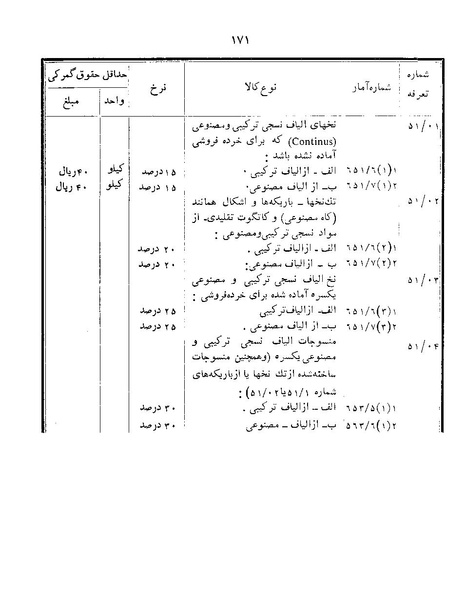 ۱۷۱
شماره تعرفه | شماره آمار | نوع کالا | نرخ | حداقل حقوق گمرکی
واحد | مبلغ
۵۱/۰۱ نخهای الیاف نسجی ترکیبی و مصنوعی
(Continus) که برای خرده فروشی
آماده نشده باشد :
۶۵۱/۶(۱)۱ الف - از الیاف ترکیبی . ۱۵ درصد کیلو ۴۰ ریال
۶۵۱/۷(۱)۲ ب - از الیاف مصنوعی . ۱۵ درصد کیلو ۴۰ ریال
۵۱/۰۲ تك نخها - باریکه‌ها و اشکال همانند
(کاه مصنوعی) و کاتگوت تقلیدی . از
مواد نسجی ترکیبی و مصنوعی :
۶۵۱/۶(۲)۱ الف - از الیاف ترکیبی . ۲۰ درصد
۶۵۱/۷(۲)۲ ب - از الیاف مصنوعی : ۲۰ درصد
۵۱/۰۳ نخ الیاف نسجی ترکیبی و مصنوعی
یکسره آماده شده برای خرده‌فروشی :
۶۵۱/۶(۳)۱ الف - از الیاف ترکیبی ۲۵ درصد
۶۵۱/۷(۳)۲ ب - از الیاف مصنوعی . ۲۵ درصد
۵۱/۰۴ منسوجات الیاف نسجی ترکیبی و
مصنوعی یکسره (وهمچنین منسوجات
ساخته‌شده از تك نخها یا از باریکه‌های
شماره ۵۱/۱ یا ۵۱/۰۲) :
۶۵۳/۵(۱)۱ الف - از الیاف ترکیبی . ۳۰ درصد
۵۶۳/۶(۱)۲ ب - از الیاف - مصنوعی ۳۰ درصد